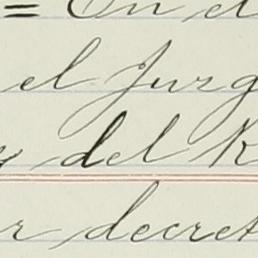 = En el
el Juzg
y del R
r decret